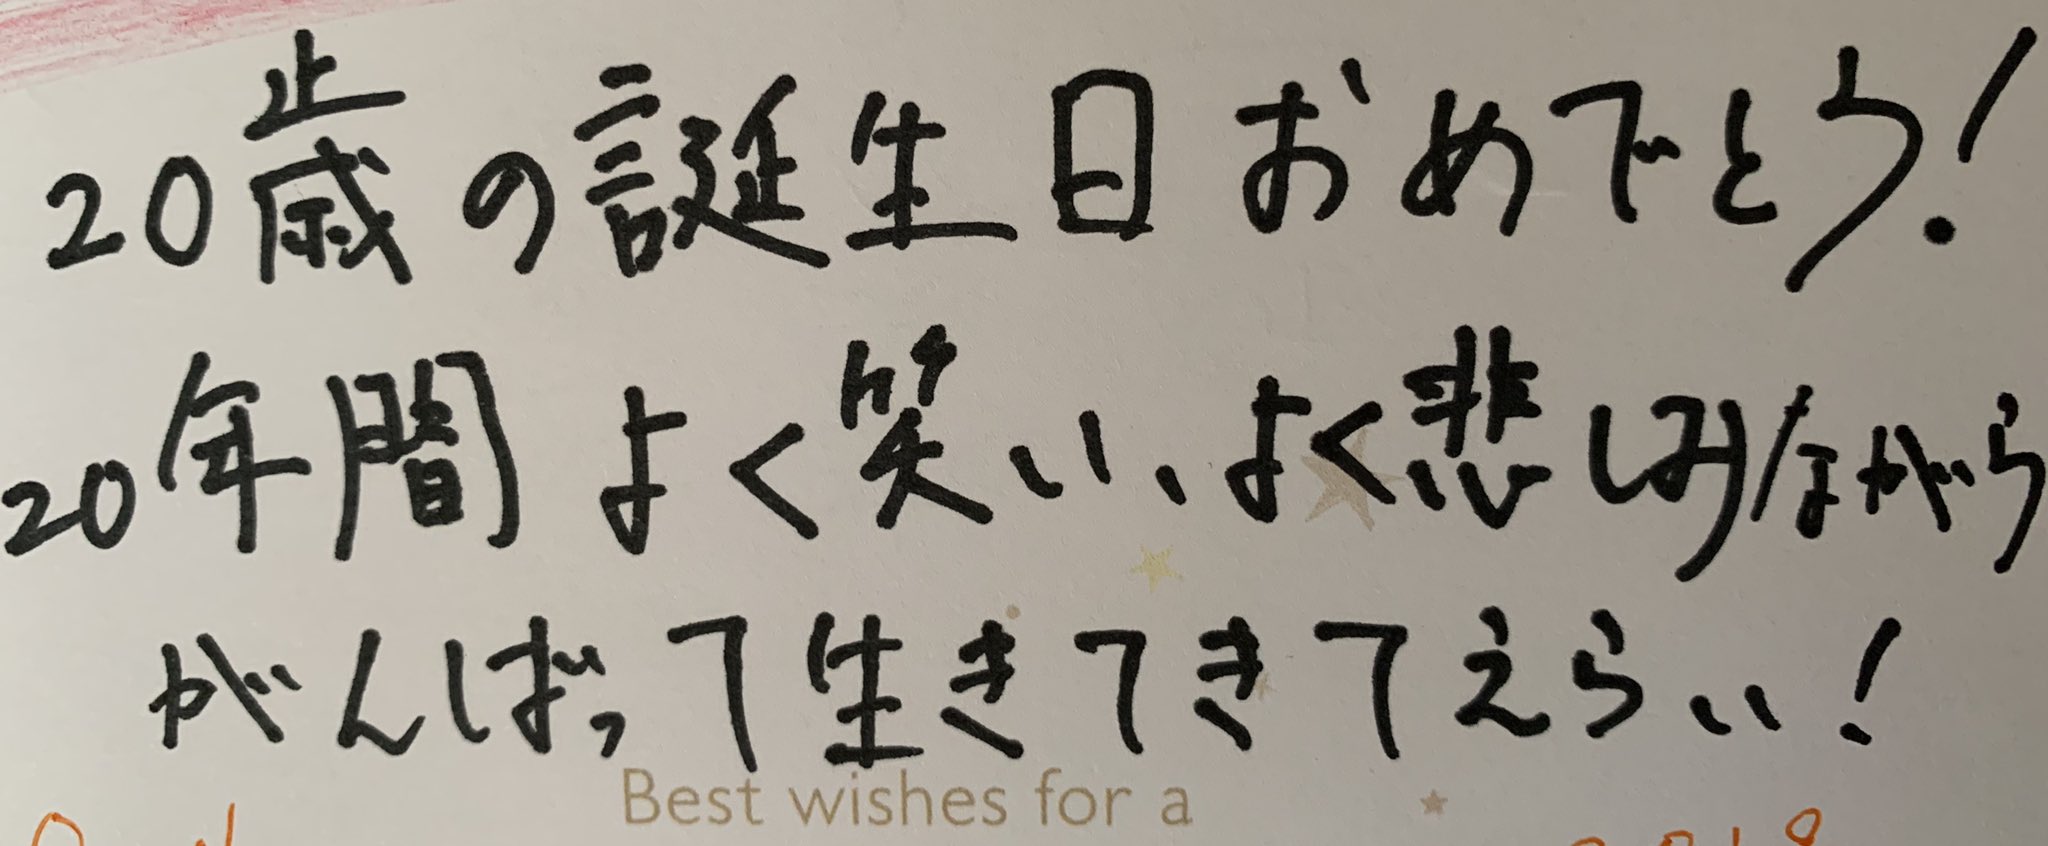 20歳の誕生日おめでとう!
20年間よく笑い、よく悲しみながら
がんばって生きてきてえらい!
Best wishes for a